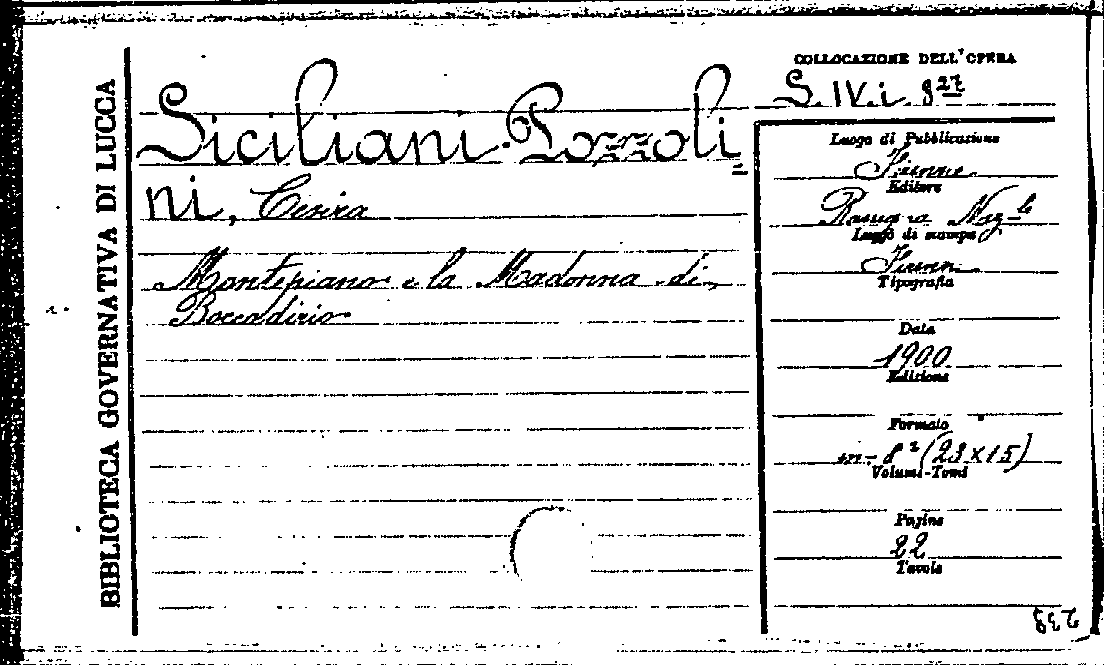 BIBLIOTECA GOVERNATIVA DI LUCCA
COLLOCAZIONE DELL'OPERA
S. IV. i. 827
Siciliani-Pozzoli=
ni, Cesira
Montepiano e la Madonna di
Boccadirio
Luogo di Pubblicazione
Firenze
Editore
Naz.le
Luogo di stampa
Firenze
Tipografia
Data
1900
Edizione
Formato
in-8° (23x15)
Volumi-Tomi
Pagine
22
Tavole